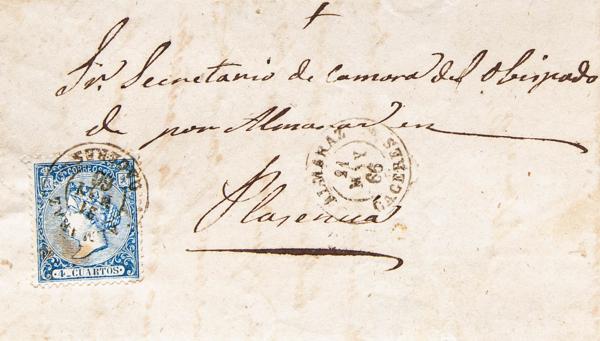 Sr. Secretario de camara del Obispado
de por Almaraz en
Plasencia
ALMARAZ
21
MAY
66
CACERES
CORREOS
4 CUARTOS